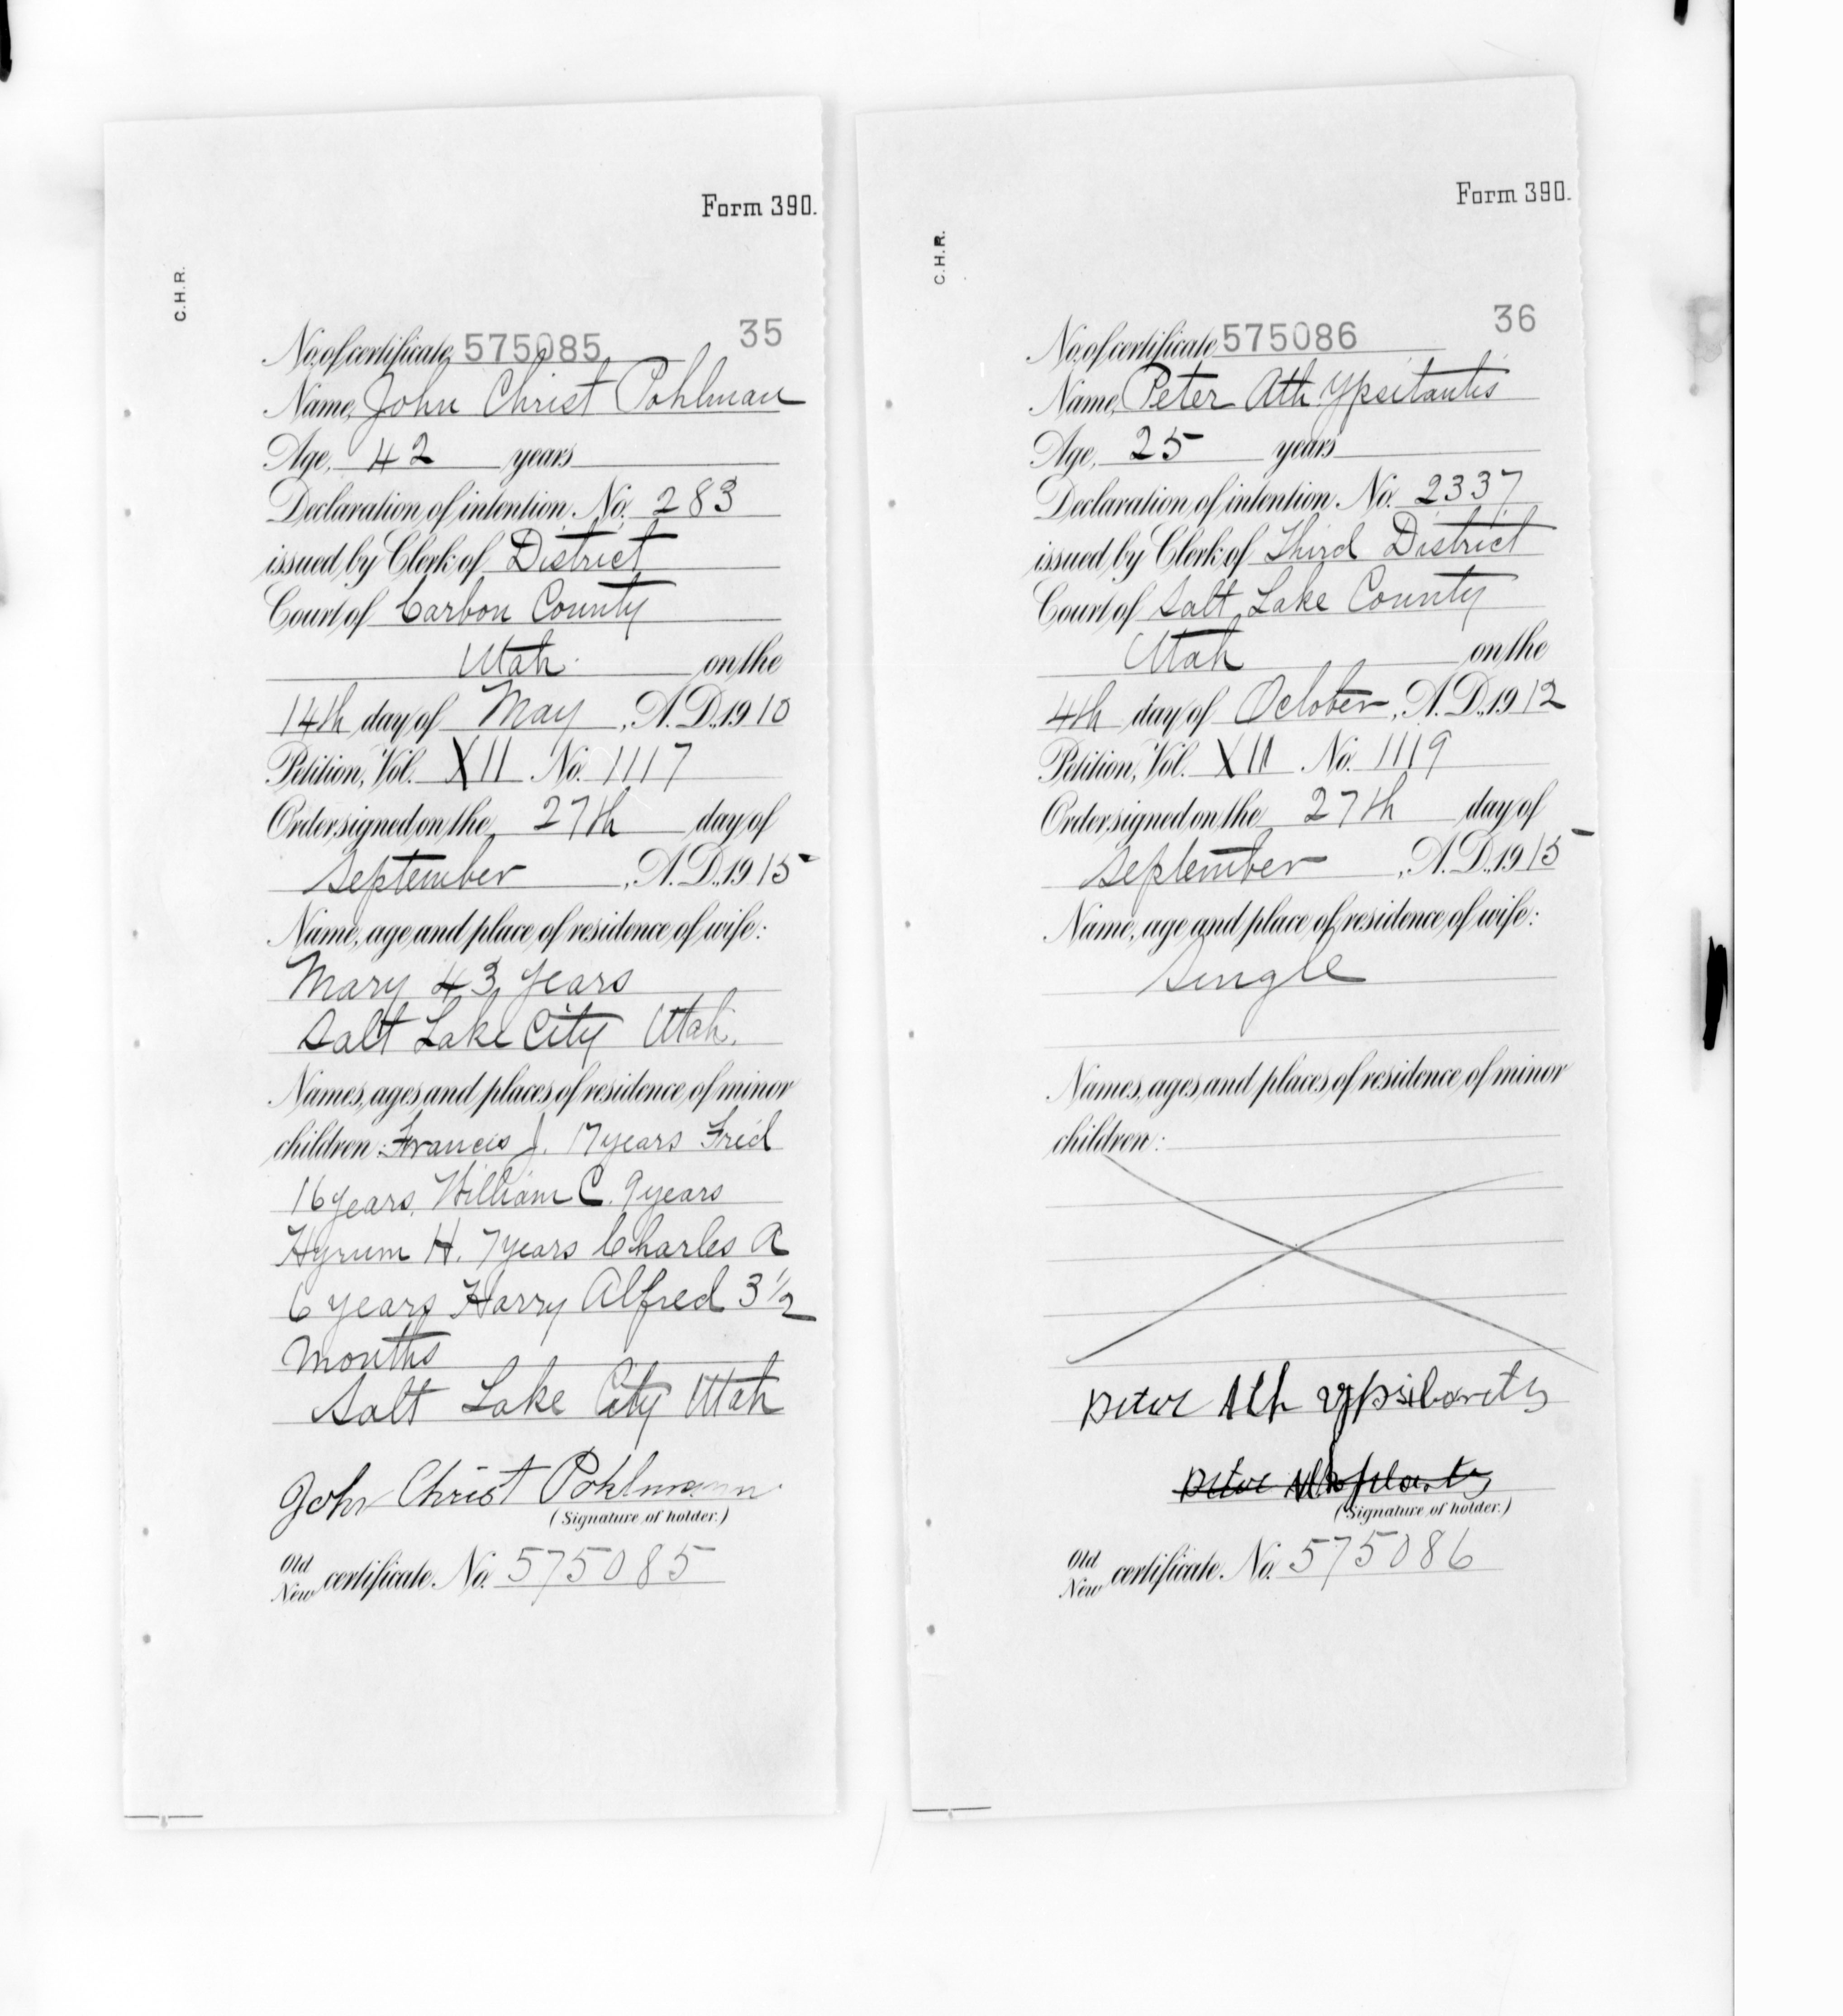 Form 390.
C.H.R.
35
No. of certificate, 575085
Name, John Christ Pohlman
Age, 42 years
Declaration of intention, No. 283
issued by Clerk of District
Court of Carbon County
Utah. on the
14th day of May, A.D., 1910
Petition, Vol. XII No. 1117
Order signed on the 27th day of
September, A.D., 1915
Name, age and place of residence of wife:
Mary 43 years
Salt Lake City Utah.
Names, ages and places of residence of minor
children: Francis J. 17 years Fred
16 years, William C. 9 years
Hyrum H. 7 years Charles A
6 years Harry Alfred 3 1/2
months
Salt Lake City Utah
John Christ Pohlmann
(Signature of holder.)
Old
New certificate, No. 575085
Form 390.
C.H.R.
36
No. of certificate, 575086
Name, Peter Ath Ypsitantis
Age, 25 years
Declaration of intention, No. 2337
issued by Clerk of Third District
Court of Salt Lake County
Utah on the
4th day of October, A.D., 1912
Petition, Vol. XII No. 1119
Order signed on the 27th day of
September, A.D., 1915
Name, age and place of residence of wife:
Single
Names, ages and places of residence of minor
children:
Ath
(Signature of holder.)
Old
New certificate, No. 575086